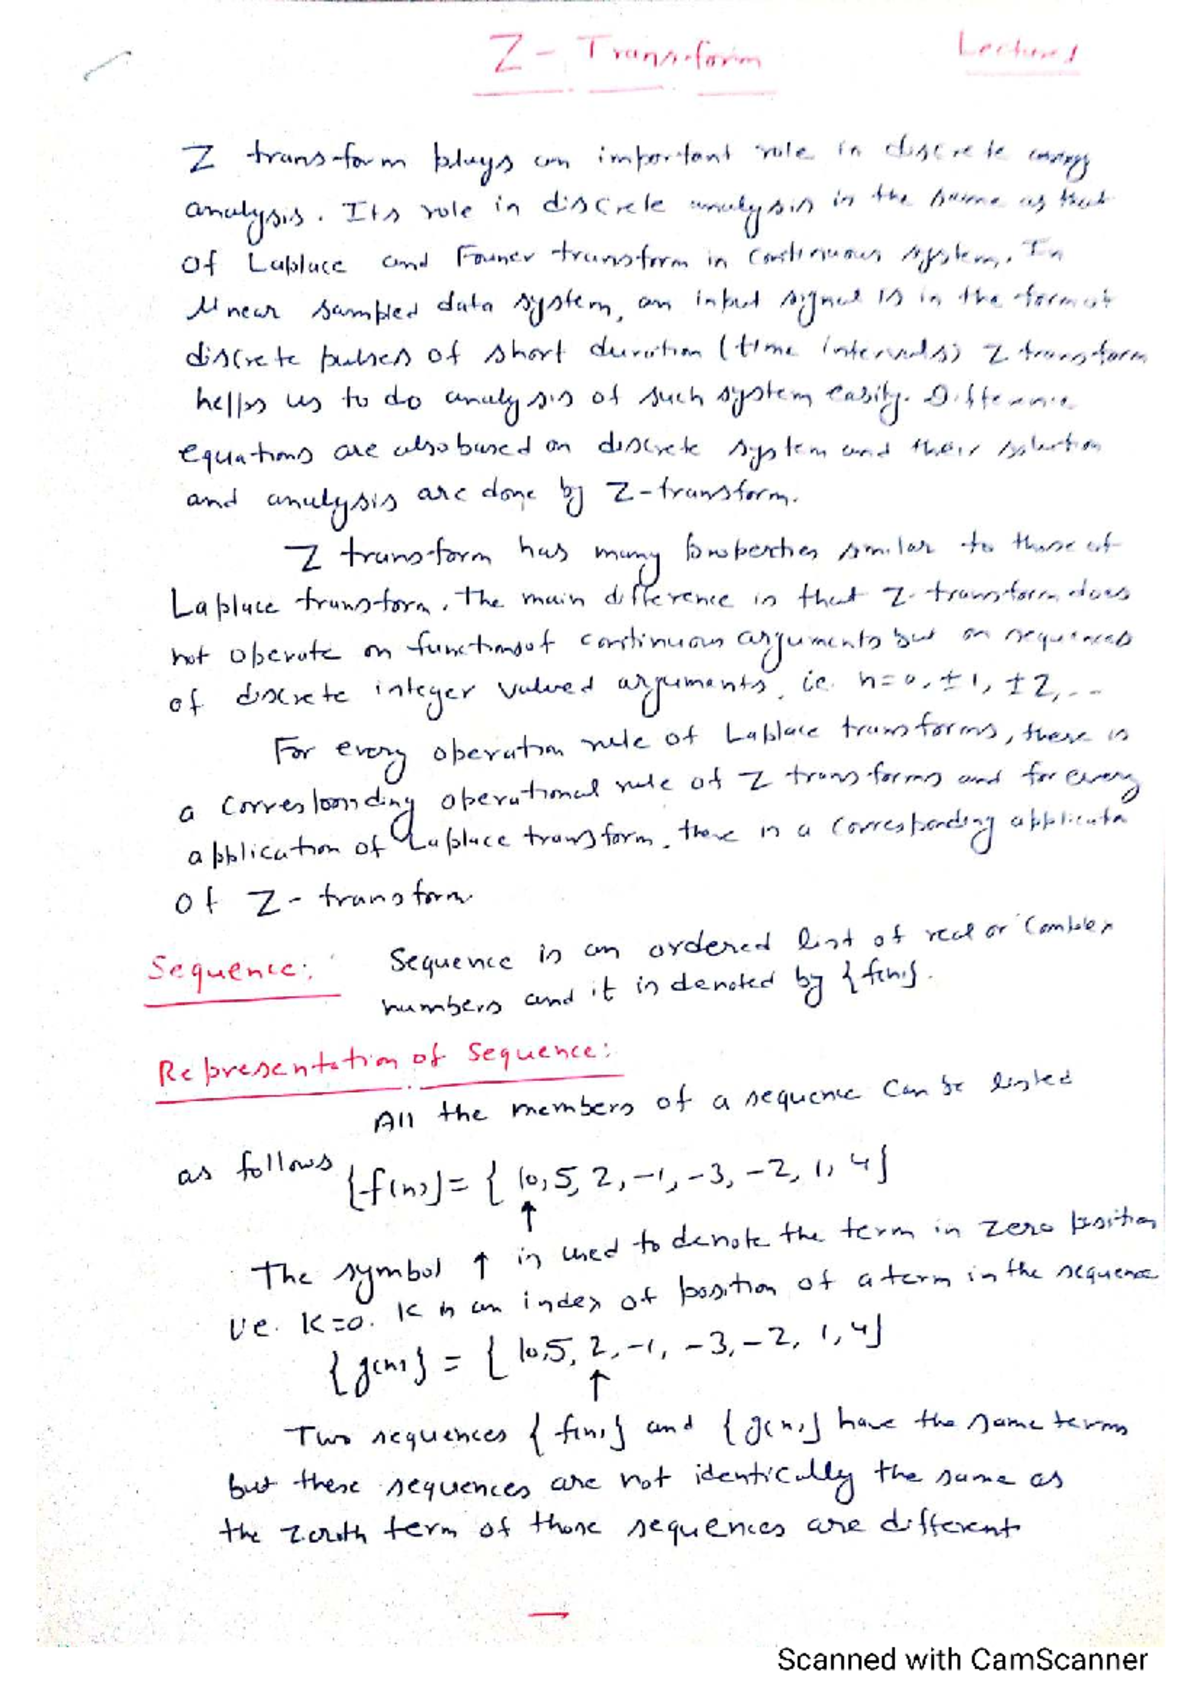 Z - Transform Lecture 1
Z transform plays an important role in discrete
analysis. Its role in discrete analysis is the same as that
of Laplace and Fourier transform in continuous system. In
linear sampled data system, an input signal is in the form of
discrete pulses of short duration (time intervals) Z transform
helps us to do analysis of such system easily. Difference
equations are also based on discrete system and their solution
and analysis are done by Z-transform.
Z transform has many properties similar to those of
Laplace transform. The main difference is that Z-transform does
not operate on functions of continuous arguments but on sequences
of discrete integer valued arguments, i.e. n=0, ±1, ±2, ...
For every operation rule of Laplace transforms, there is
a corresponding operational rule of Z transforms and for every
application of Laplace transform, there is a corresponding applicatn
of Z - transform.
Sequence: Sequence is an ordered list of real or complex
numbers and it is denoted by {f(n)}.
Representation of Sequence:
All the members of a sequence can be listed
as follows {f(n)} = { 10, 5, 2, -1, -3, -2, 1, 4}
↑
The symbol ↑ is used to denote the term in zero position
i.e. K=0. K is an index of position of a term in the sequence
{g(n)} = { 10, 5, 2, -1, -3, -2, 1, 4}
↑
Two sequences {f(n)} and {g(n)} have the same terms
but these sequences are not identically the same as
the zeroth term of those sequences are different
Scanned with CamScanner